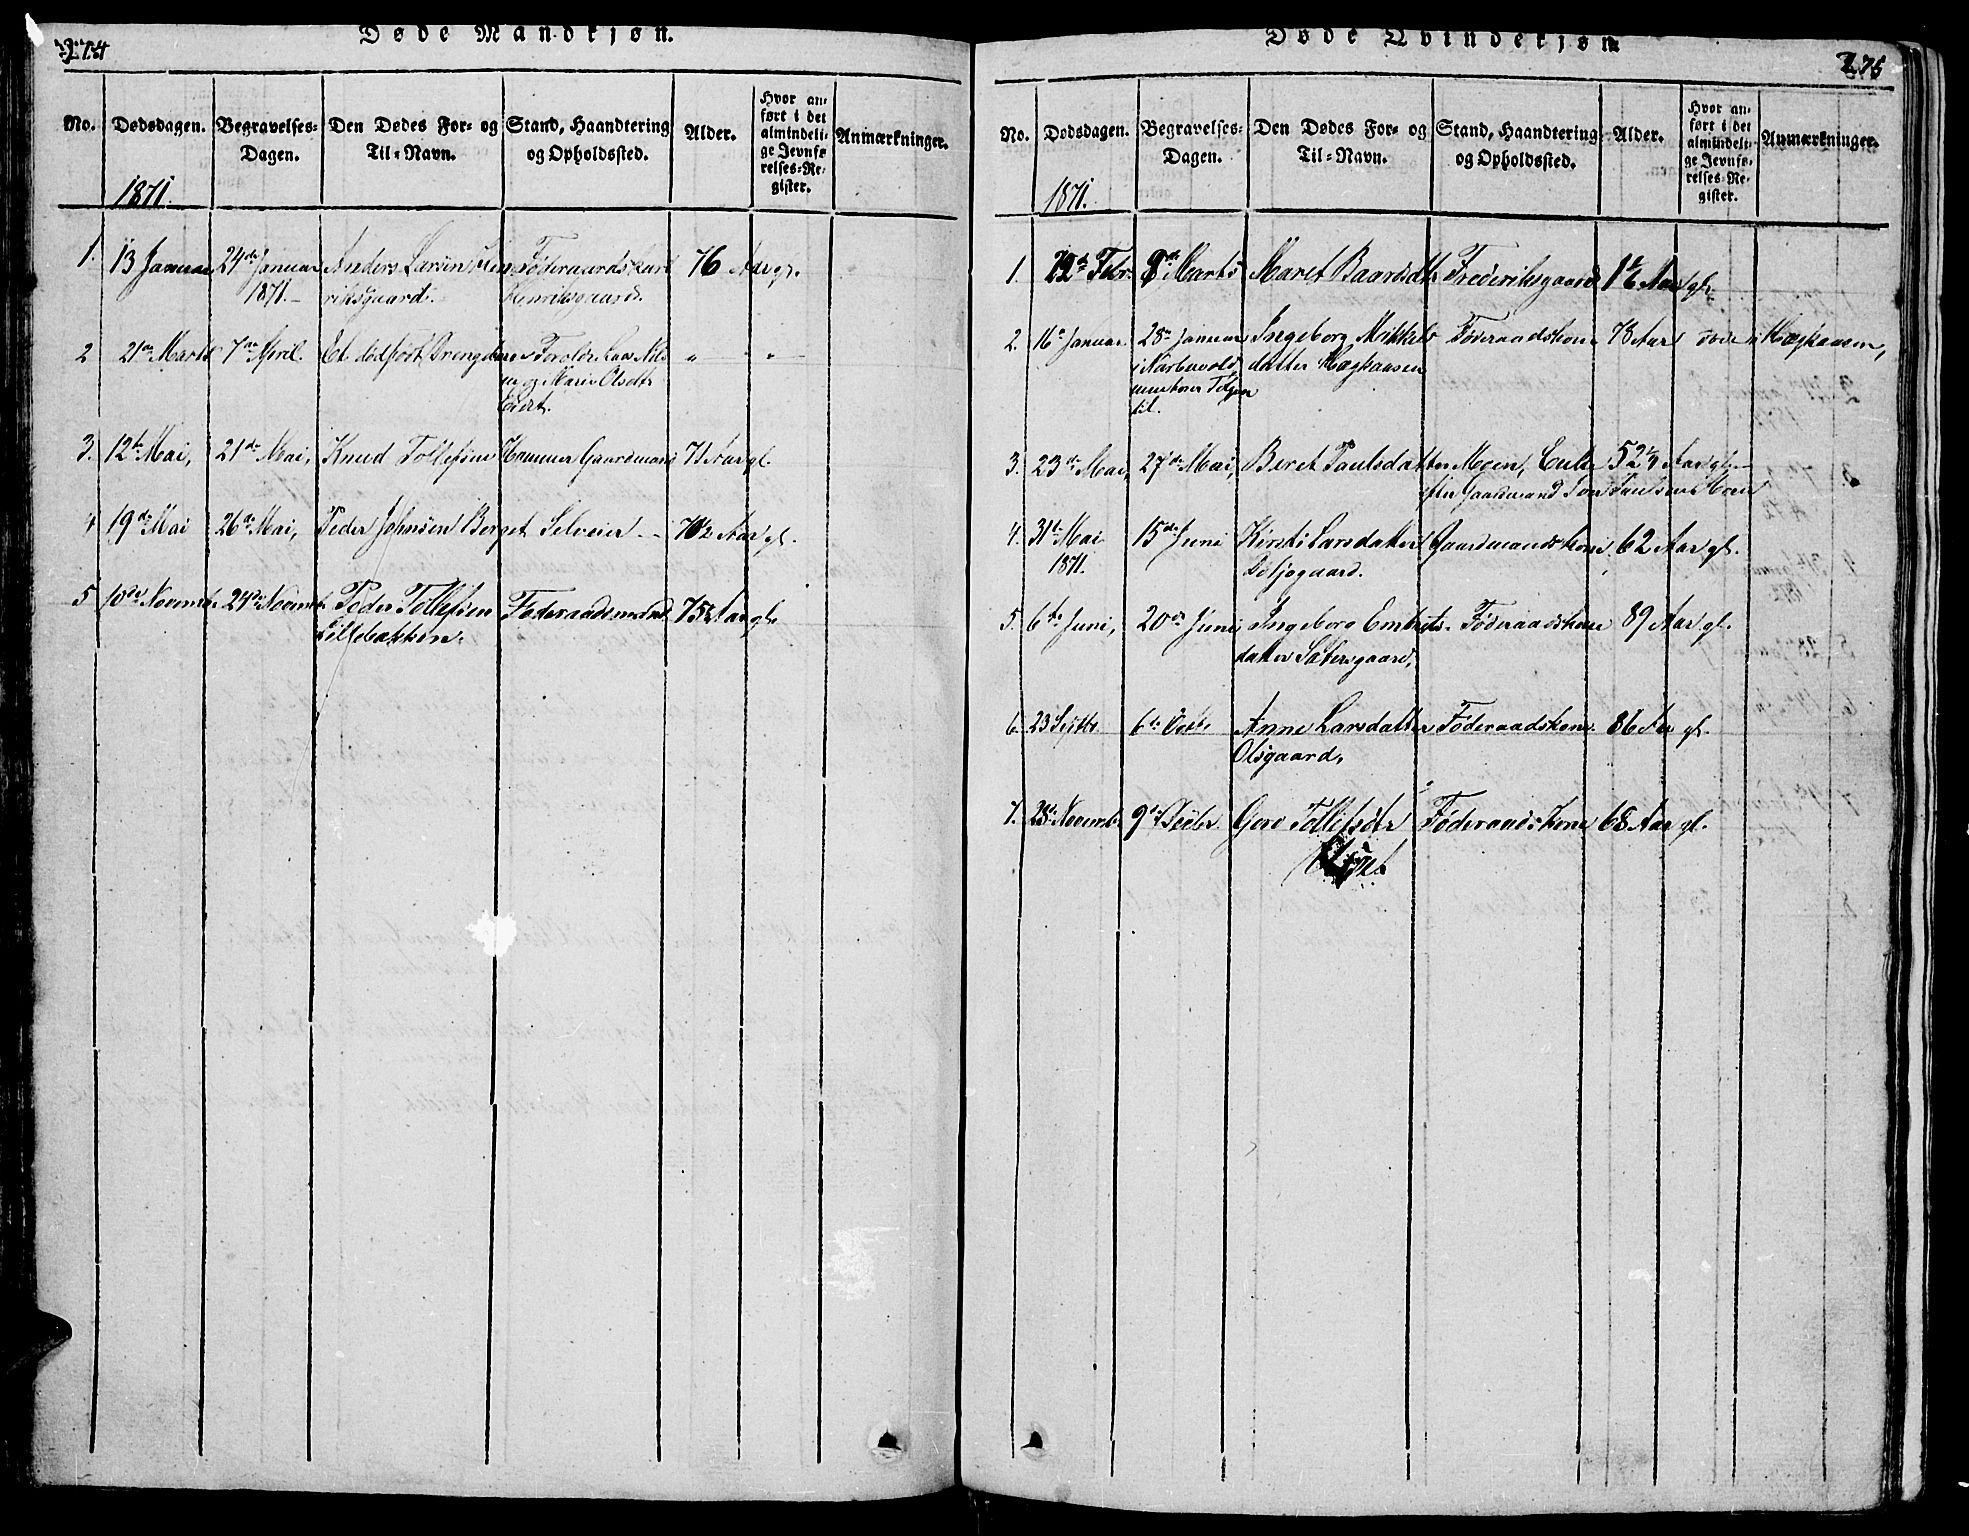 274
Døde Mandkjøn.
No. Dødsdagen. Begravelses- Dagen. Den Dødes For- og Til-Navn. Stand, Haandtering og Opholdssted. Alder. Hvor anført i det almindelige Jevnførelses-Register. Anmærkninger.
1871.
1. 13 Januar 24de Januar Anders Larsen Hen- Føderaadskarl 76 Aar gl.
1871.- riksgaard. Henriksgaard.
2 21de Marts 7de April. Et dødfødt Drengebarn Foræld: Lars Nils- " "
og Marie Olsdtr
Eidet.
3. 12te Mai, 21de Mai, Knud Tollefsen Hommen Gaardmand 71 Aar gl.
4 19de Mai 26de Mai, Peder Johnsen Berget Selveier - 70 1/2 Aar gl.
5 10de Novembr. 24de Novembr. Peder Tollefsen Føderaadsmand 75 1/2 Aar gl.
Lillebakken.
275
Døde Qvindekjøn.
No. Dødsdagen. Begravelses- Dagen. Den Dødes For- og Til-Navn. Stand, Haandtering og Opholdssted. Alder. Hvor anført i det almindelige Jevnførelses-Register. Anmærkninger.
1871.
1. 12te Febr. 8de Marts Maret Baardsdtr Frederiksgaard 1 1/6 Aar gl.
2. 16de Januar 28de Januar Ingeborg Mikkels- Føderaadskone 78 Aar døde i Mæghausen,
i Narbuvold, datter Mæghausen
Tolgen
til.
3. 23de Mai, 27de Mai, Beret Paulsdatter Moen, Enke 52 1/4 Aar gl.
efter Gaardmand Iver Paulsen Moen
4. 31te Mai 15de Juni Kirsti Larsdatter Gaardmandskone 62 Aar gl.
1871. Liljegaard.
5. 6te Juni, 20de Juni Ingeborg Embrets- Føderaadskone 89 Aar gl.
datter Sætersgaard,
6. 23 Septbr. 6te Octbr Anne Larsdatter Føderaadskone 86 Aar gl.
Olsgaard,
7. 28de Novembr. 9de Decbr. Guro Tollefsdtr Føderaadskone 68 Aar gl.